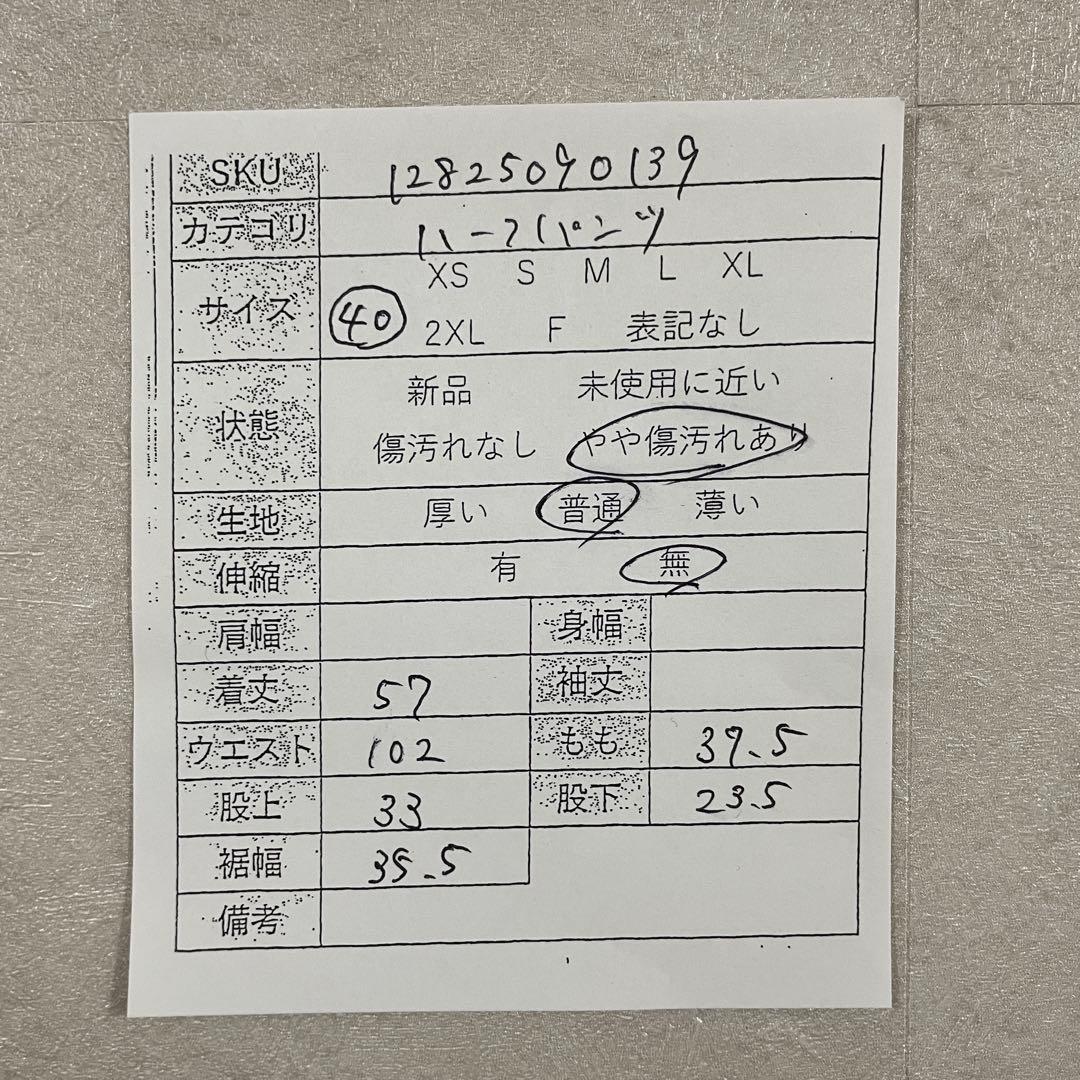 SKU 12825090139
カテゴリ ハーフパンツ
XS S M L XL
サイズ 40 2XL F 表記なし
新品 未使用に近い
状態
傷汚れなし やや傷汚れあり
生地 厚い 普通 薄い
伸縮 有 無
肩幅 身幅
着丈 57 袖丈
ウエスト 102 もも 39.5
股上 33 股下 23.5
裾幅 35.5
備考